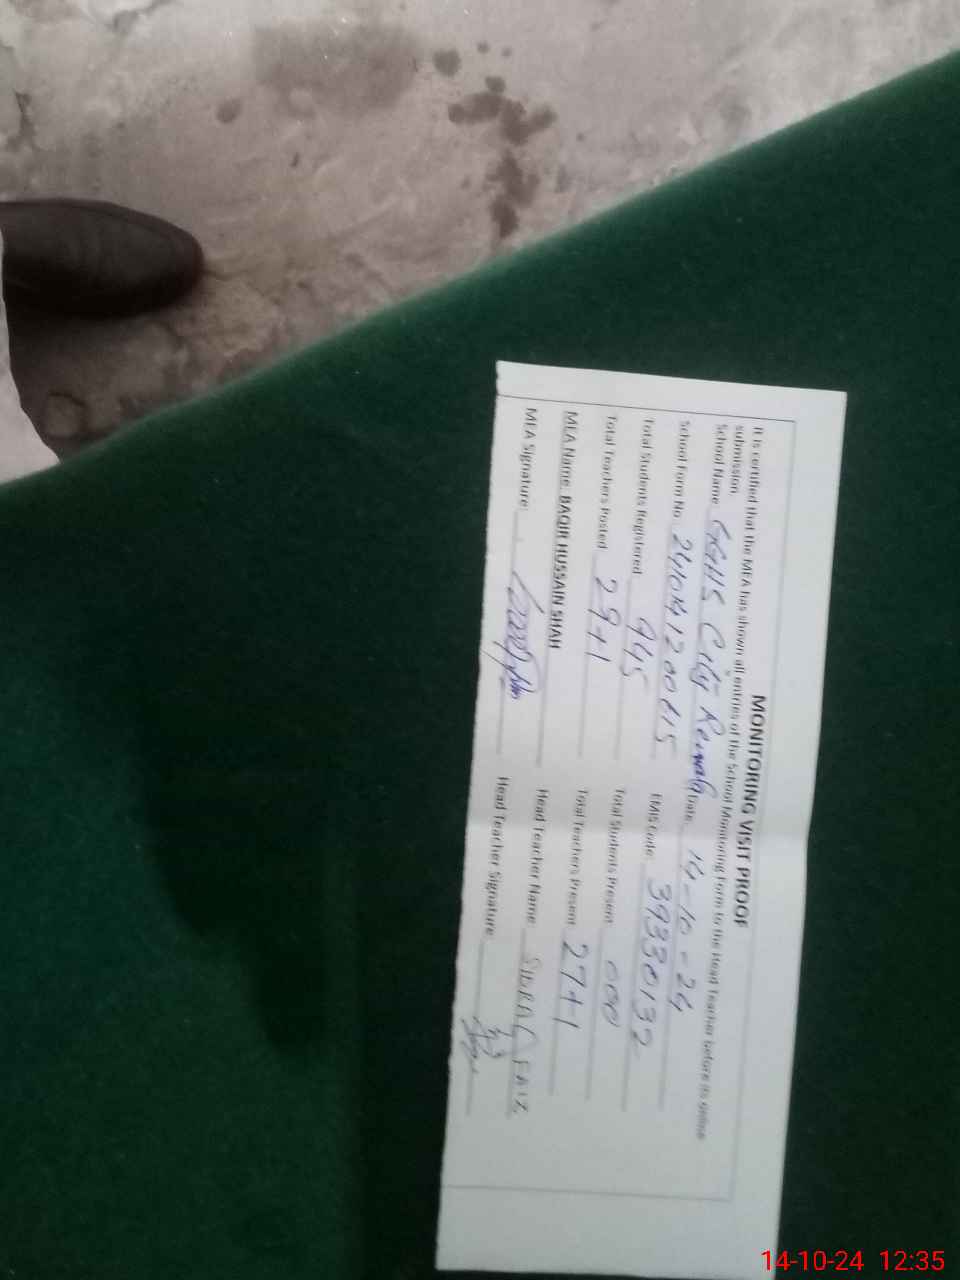 MONITORING VISIT PROOF
It is certified that the MEA has shown all entries of the School Monitoring Form to the Head Teacher before its online
submission.
School Name: GGHS City Date: 14-10-24
School Form No: EMIS Code: 39330132
Total Students Registered 945 Total Students Present 000
Total Teachers Posted 29+1 Total Teachers Present 27+1
MEA Name: BAQIR HUSSAIN SHAH Head Teacher Name:
MEA Signature: Head Teacher Signature:
14-10-24 12:35